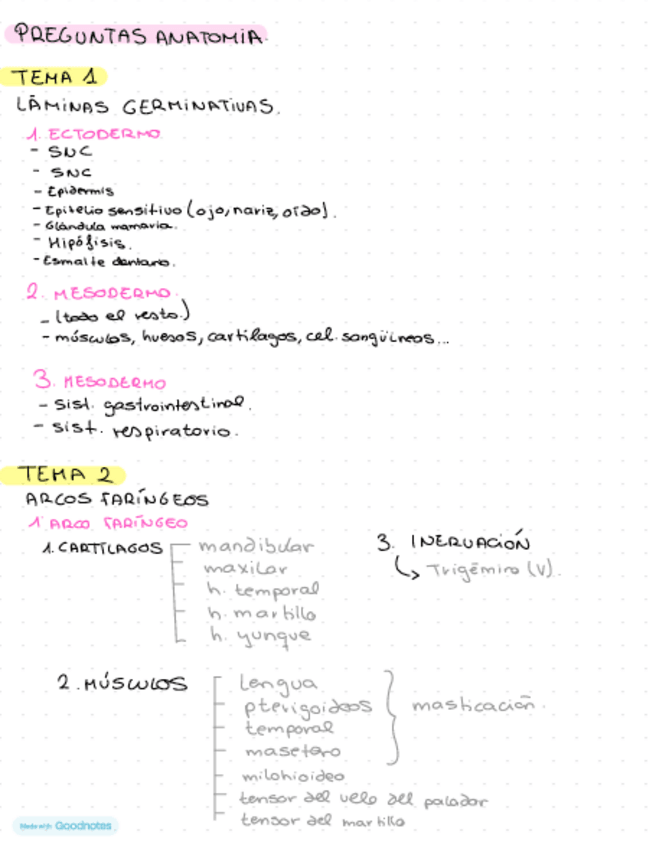 PREGUNTAS ANATOMIA.
TEMA 1
LÁMINAS GERMINATIVAS.
1. ECTODERMO
- SNC
- SNC
- Epidermis
- Epitelio sensitivo (ojo, nariz, oído).
- Glándula mamaria.
- Hipófisis.
- Esmalte dentario.
2. MESODERMO.
- (todo el resto.)
- músculos, huesos, cartílagos, cel. sangüíneos...
3. MESODERMO
- Sist. gastrointestinal.
- sist. respiratorio.
TEMA 2
ARCOS FARÍNGEOS
1 ARCO FARÍNGEO
1. CARTÍLAGOS
mandibular
maxilar
h. temporal
h. martillo
h. yunque
3. INERVACIÓN
↳ Trigémino (V).
2. MÚSCULOS
lengua
pterigoideos
temporal
masetero
masticación.
milohioideo
tensor del velo del paladar
tensor del martillo
Made with Goodnotes